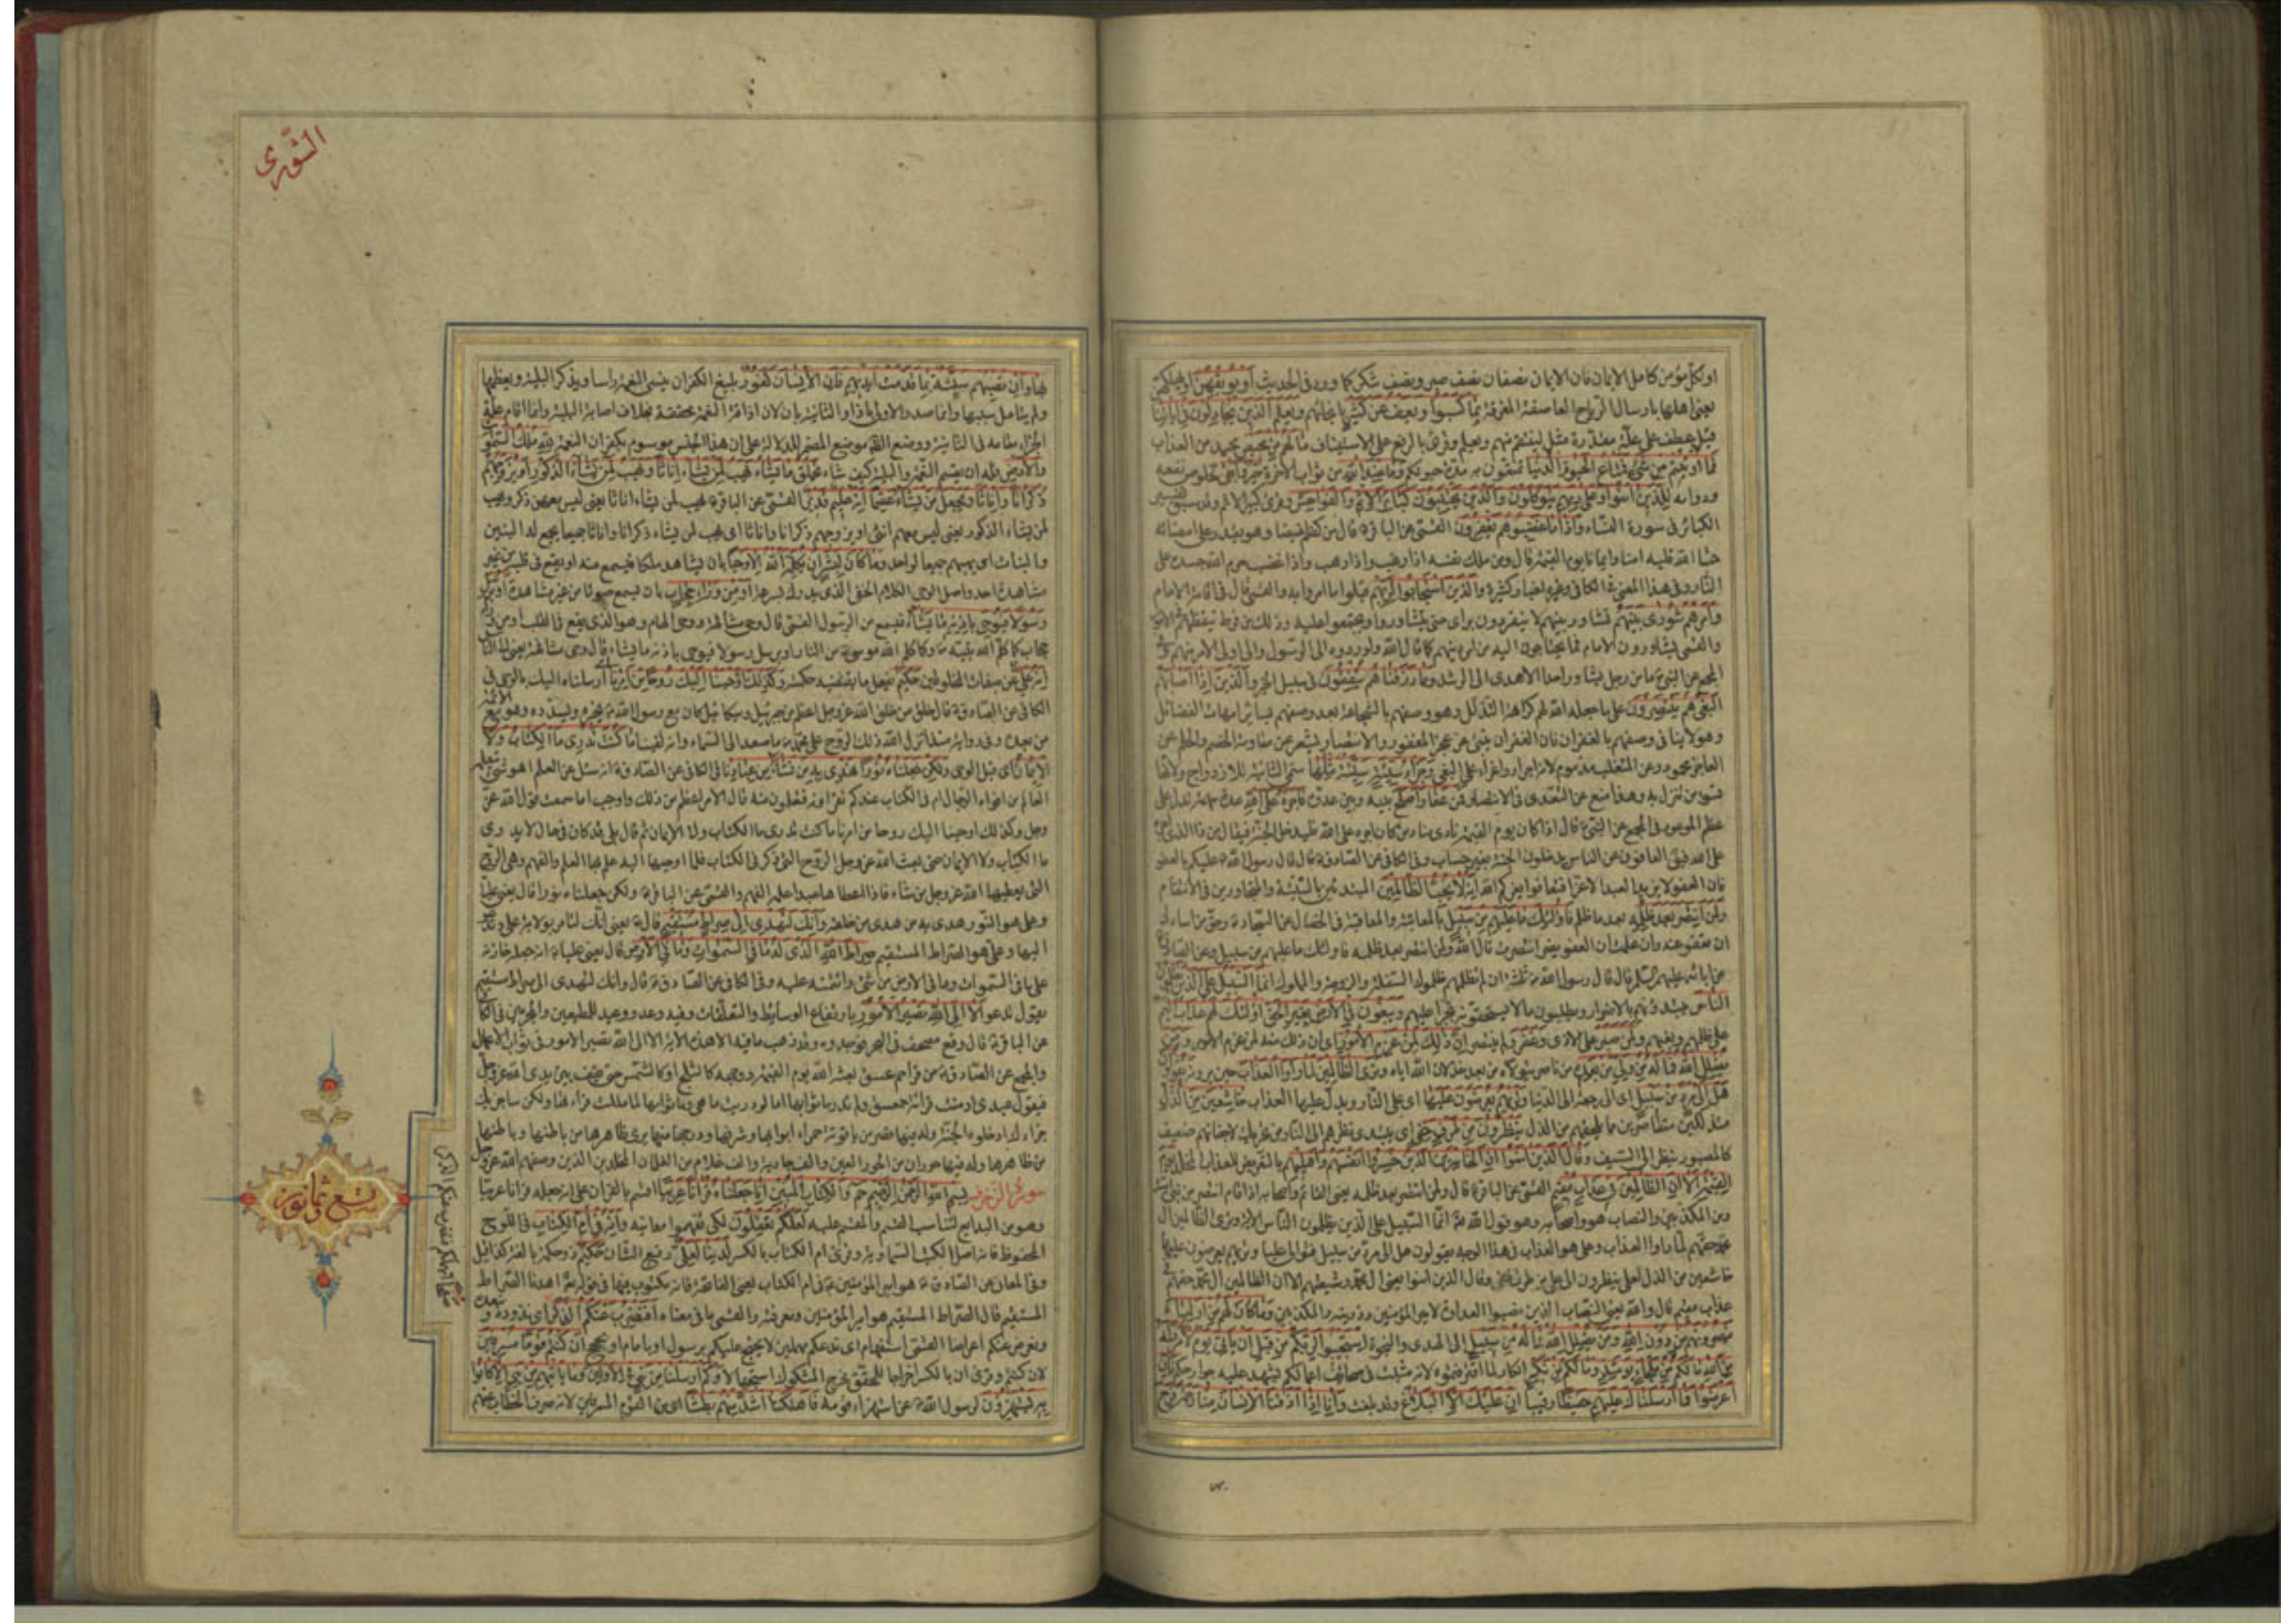 او لكلّ مؤمن كامل الايمان فان الايمان نصفان نصف صبر ونصف شكر كما ورد فى الحديث أَوْ يُوبِقْهُنَّ او يهلكهنّ
يعنى اهلها بارسال الرّياح العاصفة المغرقة بِمَا كَسَبُوا وَيَعْفُ عَنْ كَثِيرٍ بانجائهم وَيَعْلَمَ الَّذِينَ يُجَادِلُونَ فِي آيَاتِنَا
قيل عطف على علّة مقدّرة مثل لينتقم منهم ويعلم وقرئ بالرفع على الاستيناف مَا لَهُمْ مِنْ مَحِيصٍ محيد من العذاب
فَمَا أُوتِيتُمْ مِنْ شَيْءٍ فَمَتَاعُ الْحَيٰوةِ الدُّنْيَا تمتّعون به مدّة حيوتكم وَمَا عِنْدَ اللَّهِ من ثواب الاخرة خَيْرٌ وَأَبْقَى لخلوص نفعه
ودوامه لِلَّذِينَ آمَنُوا وَعَلَى رَبِّهِمْ يَتَوَكَّلُونَ وَالَّذِينَ يَجْتَنِبُونَ كَبَائِرَ الْإِثْمِ وَالْفَوَاحِشَ وقرئ كبير الاثم وقد سبق تفسير
الكبائر فى سورة النّساء وَإِذَا مَا غَضِبُوا هُمْ يَغْفِرُونَ القمّى عن الباقرة قال من كظم غيظا وهو يقدر على امضائه
حشا الله قلبه امنا وايمانا يوم القيمة قال ومن ملك نفسه اذا رغب واذا رهب واذا غضب حرم الله جسده على
النّار وفى هذا المعنى فى الكافى وغيره اخبار كثيرة وَالَّذِينَ اسْتَجَابُوا لِرَبِّهِمْ قبلوا ما امروا به والقمى قال فى اقامة الامام
وَأَمْرُهُمْ شُورَى بَيْنَهُمْ تشاور بينهم لا ينفردون براى حتى يتشاوروا ويجتمعوا عليه وذلك من فرط تيقّظهم فى الامور
والقمى يشاورون الامام فيما يحتاجون اليه من امر دينهم كما قال الله ولو ردّوه الى الرسول والى اولى الامر منهم
المجمع عن النبىّ ما من رجل يشاور احدا الا هدى الى الرشد وَمِمَّا رَزَقْنَاهُمْ يُنْفِقُونَ فى سبيل الخير وَالَّذِينَ إِذَا أَصَابَهُمُ
الْبَغْيُ هُمْ يَنْتَصِرُونَ على ما جعله الله لهم كراهة التذلّل وهو وصفهم بالشجاعة بعد وصفهم بسائر امهات الفضائل
وهو لا ينافى وصفهم بالغفران فان الغفران ينبئ عن عجز المغفور والانتصار يشعر عن مقاومة الخصم والحلم عن
العاجز محمود وعن المتغلب مذموم لانه اجراء واغراء على البغى وَجَزَاءُ سَيِّئَةٍ سَيِّئَةٌ مِثْلُهَا سمّى الثانية للازدواج ولانّها
تسوء من تنزل به وهذا منع عن التعدّى فى الانتصار فَمَنْ عَفَا وَأَصْلَحَ بينه وبين عدوّه فَأَجْرُهُ عَلَى اللَّهِ عدة مبهمة تدل على
عظم الموعود فى المجمع عن النبىّ قال اذا كان يوم القيمة نادى مناد من كان اجره على الله فليدخل الجنّة فيقال من ذا الذى اجره
على الله فيق العافون عن الناس يدخلون الجنة بغير حساب وفى الكافى عن الصّادقة قال قال رسول اللهة عليكم بالعفو
فان العفو لا يزيد العبد الا عزّا فتعافوا يعزكم الله إِنَّهُ لَا يُحِبُّ الظَّالِمِينَ المبتدئين بالسّيّئة والمتجاوزين فى الانتقام
وَلَمَنِ انْتَصَرَ بَعْدَ ظُلْمِهِ بعد ما ظلم فَأُولَئِكَ مَا عَلَيْهِمْ مِنْ سَبِيلٍ بالمعاتبة والمعاقبة فى الخصال عن السّجادة وحقّ من اساءك
ان تعفو عنه وان علمت ان العفو يضر انتصرت قال اللهُ ولمن انتصر بعد ظلمه فاولئك ما عليهم من سبيل وعن الصادق
عن ابائه عليهم السّلم قال قال رسول الله ثلثة ان لم تظلمهم ظلموك السفلة والزوجة والمملوك إِنَّمَا السَّبِيلُ عَلَى الَّذِينَ يَظْلِمُونَ
النَّاسَ يبتدؤنهم بالاضرار ويطلبون ما لا يستحقّونه تجبرا عليهم وَيَبْغُونَ فِي الْأَرْضِ بِغَيْرِ الْحَقِّ أُولَئِكَ لَهُمْ عَذَابٌ أَلِيمٌ
على ظلمهم وبغيهم وَلَمَنْ صَبَرَ على الاذى وَغَفَرَ ولم ينتصر إِنَّ ذَلِكَ لَمِنْ عَزْمِ الْأُمُورِ اى ان ذلك منه لمن عزم الامور وَمَنْ
يُضْلِلِ اللَّهُ فَمَا لَهُ مِنْ وَلِيٍّ مِنْ بَعْدِهِ من ناصر يتولاه من بعد خذلان الله اياه وَتَرَى الظَّالِمِينَ لَمَّا رَأَوُا الْعَذَابَ حين يرونه يَقُولُونَ
هَلْ إِلَى مَرَدٍّ مِنْ سَبِيلٍ اى الى رجعة الى الدّنيا وَتَرَاهُمْ يُعْرَضُونَ عَلَيْهَا اى على النّار ويدلّ عليها العذاب خَاشِعِينَ مِنَ الذُّلِّ
متذللين متقاصرين مما يلحقهم من الذل يَنْظُرُونَ مِنْ طَرْفٍ خَفِيٍّ اى يبتدى نظرهم الى النّار من تحريك لاجفانهم ضعيف
كالمصبور ينظر الى السّيف وَقَالَ الَّذِينَ آمَنُوا إِنَّ الْخَاسِرِينَ الَّذِينَ خَسِرُوا أَنْفُسَهُمْ وَأَهْلِيهِمْ بالتعريض للعذاب المخلد يَوْمَ
الْقِيٰمَةِ أَلَا إِنَّ الظَّالِمِينَ فِي عَذَابٍ مُقِيمٍ القمّى عن الباقرة قال ولمن انتصر بعد ظلمه يعنى القائم واصحابه اذا قام انتصر من بنى اميّة
ومن المكذّبين والنصاب هو واصحابه وهو قول الله انّما السّبيل على الّذين يظلمون النّاس الاية وترى الظالمين ال
محمد حقّهم لمّا راوا العذاب وعلى هو العذاب فى هذا الوجه يقولون هل الى مردّ من سبيل فنوالى عليا وتريهم يعرضون عليها
خاشعين من الذل لعلى ينظرون الى على من طرف خفى وقال الذين امنوا يعنى ال محمّد وشيعتهم الا ان الظالمين ال محمّد حقّهم فى
عذاب مقيم قال والله يعنى النصّاب الذين نصبوا العداوة لامير المؤمنين وذريته والمكذبين وَمَا كَانَ لَهُمْ مِنْ أَوْلِيَاءَ
يَنْصُرُونَهُمْ مِنْ دُونِ اللَّهِ وَمَنْ يُضْلِلِ اللَّهُ فَمَا لَهُ مِنْ سَبِيلٍ الى الهدى والنجاة اسْتَجِيبُوا لِرَبِّكُمْ مِنْ قَبْلِ أَنْ يَأْتِيَ يَوْمٌ لَا مَرَدَّ لَهُ
مِنَ اللَّهِ مَا لَكُمْ مِنْ مَلْجَإٍ يَوْمَئِذٍ وَمَا لَكُمْ مِنْ نَكِيرٍ انكار لما اقترفتموه لانه مثبت فى صحائف اعمالكم يشهد عليه جوارحكم فَإِنْ
أَعْرَضُوا فَمَا أَرْسَلْنَاكَ عَلَيْهِمْ حَفِيظًا رقيبا إِنْ عَلَيْكَ إِلَّا الْبَلَاغُ وقد بلغت وَإِنَّا إِذَا أَذَقْنَا الْإِنْسَانَ مِنَّا رَحْمَةً فَرِحَ
الشّورى
بِهَا وَإِنْ تُصِبْهُمْ سَيِّئَةٌ بِمَا قَدَّمَتْ أَيْدِيهِمْ فَإِنَّ الْإِنْسَانَ كَفُورٌ بليغ الكفران ينسى النعمة راسا ويذكر البلية ويعظمها
ولم يتامل سببها وانما صدر الاولى باذا والثانية بان لان اذاقة النعمة محققة بخلاف اصابة البلية وانما اقام علّة
الجزاء مقامه فى الثانية ووضع الظاهر موضع المضمر للدلالة على ان هذا الجنس موسوم بكفران النعمة لِلَّهِ مُلْكُ السَّمٰوَاتِ
وَالْأَرْضِ فله ان يقسم النعمة والبلية كيف شاء يَخْلُقُ مَا يَشَاءُ يَهَبُ لِمَنْ يَشَاءُ إِنَاثًا وَيَهَبُ لِمَنْ يَشَاءُ الذُّكُورَ أَوْ يُزَوِّجُهُمْ
ذُكْرَانًا وَإِنَاثًا وَيَجْعَلُ مَنْ يَشَاءُ عَقِيمًا إِنَّهُ عَلِيمٌ قَدِيرٌ القمّى عن الباقرة يهب لمن يشاء اناثا يعنى ليس معهن ذكر ويهب
لمن يشاء الذكور يعنى ليس معهم انثى او يزوجهم ذكرانا واناثا اى يهب لمن يشاء ذكرانا واناثا جميعا يجمع له البنين
والبنات اى يهبهم جميعا لواحد وَمَا كَانَ لِبَشَرٍ أَنْ يُكَلِّمَهُ اللَّهُ إِلَّا وَحْيًا بان يشاهد ملكا فيسمع منه او يقع فى قلبه من غير
مشاهدة احد واصل الوحى الكلام الخفى الذى يدرك بسرعة أَوْ مِنْ وَرَاءِ حِجَابٍ بان يسمع صوتا من غير مشاهدة أَوْ يُرْسِلَ
رَسُولًا فَيُوحِيَ بِإِذْنِهِ مَا يَشَاءُ فيسمع من الرسول القمّى قال وحى مشافهة ووحى الهام وهو الذى يقع فى القلب او من وراء
حجاب كما كلم الله نبيّه وكما كلم الله موسى من النار او يرسل رسولا فيوحى باذنه ما يشاء قال وحى مشافهة يعنى الى النّاس
إِنَّهُ عَلِيٌّ عن صفات المخلوقين حَكِيمٌ يفعل ما يقتضيه حكمته وَكَذَلِكَ أَوْحَيْنَا إِلَيْكَ رُوحًا مِنْ أَمْرِنَا اى ارسلناه اليك بالوحى فى
الكافى عن الصّادقة قال خلق من خلق الله عزوجل اعظم من جبرئيل وميكائيل كان مع رسول الله يخبره ويسدّده وهو مع الائمّة
من بعده وفى رواية منذ انزل الله ذلك الروح على محمّد ما صعد الى السّماء وانه لفينا مَا كُنْتَ تَدْرِي مَا الْكِتَابُ وَلَا
الْإِيمَانُ اى قبل الوحى وَلَكِنْ جَعَلْنَاهُ نُورًا نَهْدِي بِهِ مَنْ نَشَاءُ مِنْ عِبَادِنَا فى الكافى عن الصّادقة انه سئل عن العلم اهو شىء يتعلمه
العالم من افواه الرّجال ام فى الكتاب عندكم تقراونه فتعلمون منه قال الامر اعظم من ذلك واوجب اما سمعت قول الله عزّ
وجل وكذلك اوحينا اليك روحا من امرنا ما كنت تدرى ما الكتاب ولا الايمان ثم قال بلى قد كان فى حال لا يدرى
ما الكتاب ولا الايمان حتى بعث الله عزوجل الروح التى ذكر فى الكتاب فلما اوحيها اليه علم بها العلم والفهم وهى الروح
التى يعطيها الله عزوجل من شاء فاذا اعطاها عبدا علمه الفهم والقمّى عن الباقرة ولكن جعلناه نورا قال يعنى عليّا
وعلى هو النّور هدى به من هدى من خلقه وَإِنَّكَ لَتَهْدِي إِلَى صِرَاطٍ مُسْتَقِيمٍ قال يعنى انّك لتامر بولاية على وتدعو
اليها وعلى هو الصّراط المستقيم صِرَاطِ اللَّهِ الَّذِي لَهُ مَا فِي السَّمٰوَاتِ وَمَا فِي الْأَرْضِ قال يعنى عليا انه جعله خازنه
على ما فى السّموات وما فى الارض من شئ وائتمنه عليه وفى الكافى عن الصّادقة قال وانك لتهدى الى صراط مستقيم
يقول تدعو أَلَا إِلَى اللَّهِ تَصِيرُ الْأُمُورُ بارتفاع الوسائط والتعلّقات وفيه وعد ووعيد للمطيعين والمجرمين فى الكافى
عن الباقرة قال وقع مصحف فى البحر فوجدوه وقد ذهب ما فيه الا هذه الاية الا الى الله تصير الامور فى ثواب الاعمال
والمجمع عن الصّادقة من قرا حم عسق بعثه الله يوم القيمة ووجهه كالثلج او كالشّمس حتى يقف بين يدى الله عزوجل
فيقول عبدى ادمنت قرائة حمعسق ولم تدر ما ثوابها اما لو دريت ما هى وما ثوابها لما مللت قراءتها ولكن ساجزيك
جزاءك ادخلوه الجنة وله فيها قصر من ياقوتة حمراء ابوابها وشرفها ودرجها منها يرى ظاهرها من باطنها وباطنها
من ظاهرها وله فيها حوران من الحور العين والف جارية والف غلام من الغلمان المخلدين الذين وصفهم الله عزوجل
سورة الزّخرف بِسْمِ اللَّهِ الرَّحْمٰنِ الرَّحِيمِ حم وَالْكِتَابِ الْمُبِينِ إِنَّا جَعَلْنَاهُ قُرْآنًا عَرَبِيًّا اقسم بالقران على انه جعله قرانا عربيّا
وهو من البدايع لتناسب القسم والمقسم عليه لَعَلَّكُمْ تَعْقِلُونَ لكى تفهموا معانيه وَإِنَّهُ فِي أُمِّ الْكِتَابِ فى اللّوح
المحفوظ فانه اصل الكتب السّماوية وقرئ ام الكتاب بالكسر لَدَيْنَا لَعَلِيٌّ رفيع الشّان حَكِيمٌ ذو حكمة بالغة كذا قيل
وفى المعانى عن الصّادقة هو امير المؤمنين فى ام الكتاب يعنى الفاتحة فانه مكتوب فيها فى قوله اهدنا الصّراط
المستقيم قال الصّراط المستقيم هو امير المؤمنين ومعرفته والقمى ما فى معناه أَفَنَضْرِبُ عَنْكُمُ الذِّكْرَ اى نذوده ونبعده
ونعرض عنكم اعراضا القمّى استفهام اى ندعكم مهملين لا نحتج عليكم برسول او بامام او بحجج أَنْ كُنْتُمْ قَوْمًا مُسْرِفِينَ
لان كنتم وقرئ ان بالكسر اخراجا للمحقّق مخرج المشكوك استجهالا وَكَمْ أَرْسَلْنَا مِنْ نَبِيٍّ فِي الْأَوَّلِينَ وَمَا يَأْتِيهِمْ مِنْ نَبِيٍّ إِلَّا كَانُوا
بِهِ يَسْتَهْزِؤُنَ تسلية لرسول اللهة عن استهزاء قومه فَأَهْلَكْنَا أَشَدَّ مِنْهُمْ بَطْشًا اى من القوم المسرفين لانه صرف الخطاب عنهم